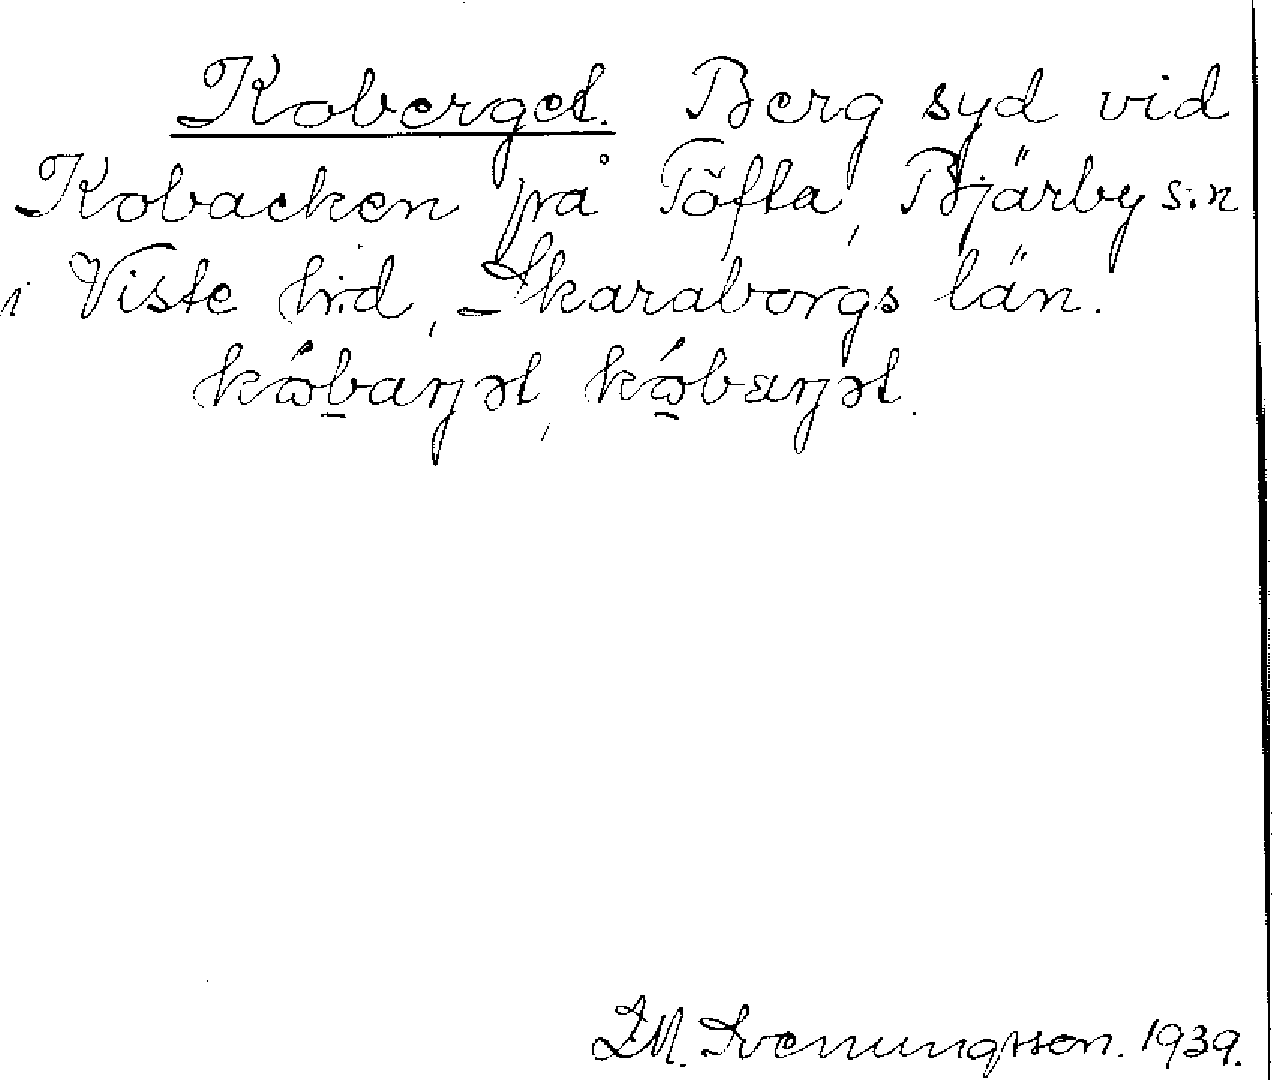 Koberget. Berg syd vid
Kobacken på Töfta, Bjärby s:n
i Viste h:d, Skaraborgs län.
kɷ́baŋət, kɷ́bɛŋət.
I.M. Svenungsson. 1939.